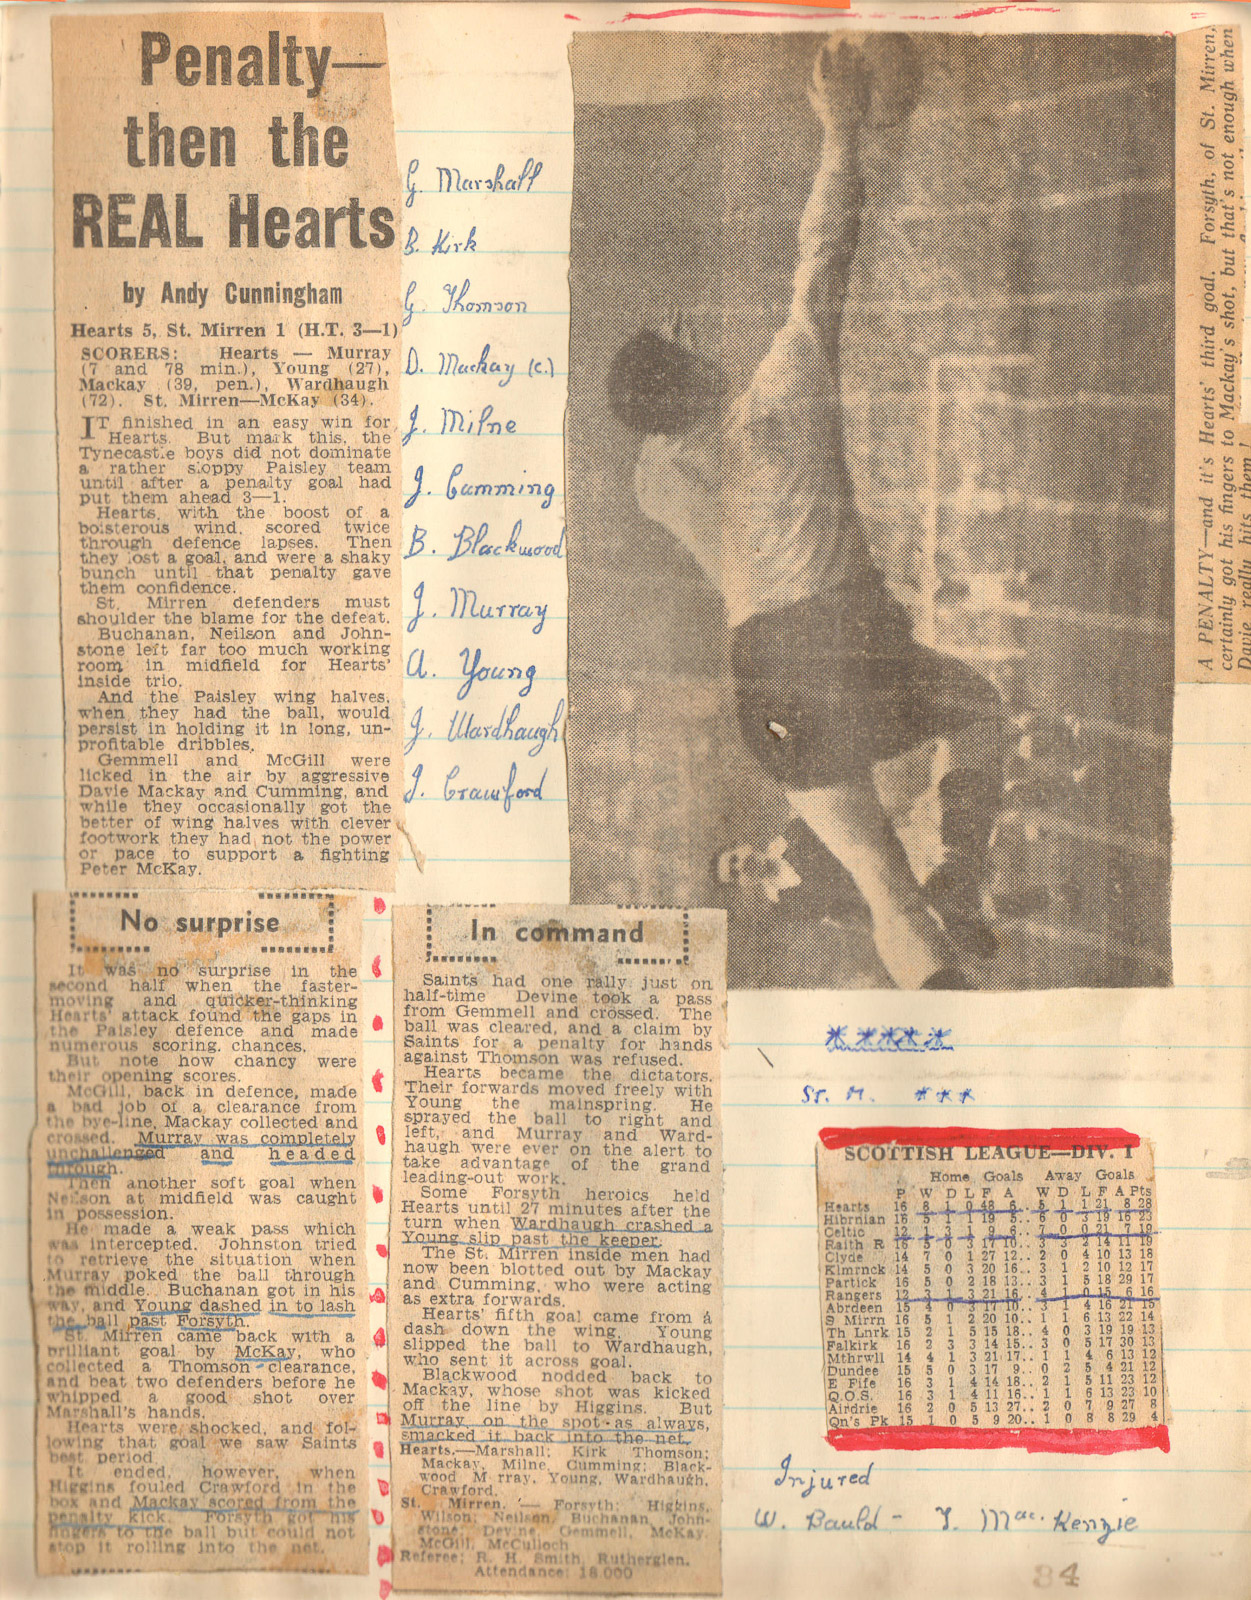 Penalty—
then the
REAL Hearts
by Andy Cunningham
Hearts 5, St. Mirren 1 (H.T. 3—1)
SCORERS: Hearts — Murray
(7 and 78 min.), Young (27),
Mackay (39, pen.), Wardhaugh
(72). St. Mirren—McKay (34).
IT finished in an easy win for
Hearts. But mark this, the
Tynecastle boys did not dominate
a rather sloppy Paisley team
until after a penalty goal had
put them ahead 3—1.
Hearts, with the boost of a
boisterous wind, scored twice
through defence lapses. Then
they lost a goal, and were a shaky
bunch until that penalty gave
them confidence.
St. Mirren defenders must
shoulder the blame for the defeat.
Buchanan, Neilson and John-
stone left far too much working
room in midfield for Hearts'
inside trio.
And the Paisley wing halves,
when they had the ball, would
persist in holding it in long, un-
profitable dribbles.
Gemmell and McGill were
licked in the air by aggressive
Davie Mackay and Cumming, and
while they occasionally got the
better of wing halves with clever
footwork they had not the power
or pace to support a fighting
Peter McKay.
G. Marshall
B. Kirk
G. Thomson
D. Mackay (c.)
J. Milne
J. Cumming
B. Blackwood
J. Murray
A. Young
J. Wardhaugh
J. Crawford
A PENALTY—and it's Hearts' third goal. Forsyth, of St. Mirren,
certainly got his fingers to Mackay's shot, but that's not enough when
Davie really hits them!
No surprise
It was no surprise in the
second half when the faster-
moving and quicker-thinking
Hearts' attack found the gaps in
the Paisley defence and made
numerous scoring chances.
But note how chancy were
their opening scores.
McGill, back in defence, made
a bad job of a clearance from
the bye-line, Mackay collected and
crossed. Murray was completely
unchallenged and headed
through.
Then another soft goal when
Neilson at midfield was caught
in possession.
He made a weak pass which
was intercepted. Johnston tried
to retrieve the situation when
Murray poked the ball through
the middle. Buchanan got in his
way, and Young dashed in to lash
the ball past Forsyth.
St. Mirren came back with a
brilliant goal by McKay, who
collected a Thomson clearance,
and beat two defenders before he
whipped a good shot over
Marshall's hands.
Hearts were shocked, and fol-
lowing that goal we saw Saints
best period.
It ended, however, when
Higgins fouled Crawford in the
box and Mackay scored from the
penalty kick. Forsyth got his
fingers to the ball but could not
stop it rolling into the net.
In command
Saints had one rally just on
half-time Devine took a pass
from Gemmell and crossed. The
ball was cleared, and a claim by
Saints for a penalty for hands
against Thomson was refused.
Hearts became the dictators.
Their forwards moved freely with
Young the mainspring. He
sprayed the ball to right and
left, and Murray and Ward-
haugh were ever on the alert to
take advantage of the grand
leading-out work.
Some Forsyth heroics held
Hearts until 27 minutes after the
turn when Wardhaugh crashed a
Young slip past the keeper.
The St. Mirren inside men had
now been blotted out by Mackay
and Cumming, who were acting
as extra forwards.
Hearts' fifth goal came from a
dash down the wing. Young
slipped the ball to Wardhaugh,
who sent it across goal.
Blackwood nodded back to
Mackay, whose shot was kicked
off the line by Higgins. But
Murray on the spot as always,
smacked it back into the net.
Hearts.—Marshall; Kirk Thomson;
Mackay, Milne, Cumming; Black-
wood M rray, Young, Wardhaugh,
Crawford.
St. Mirren. — Forsyth; Higgins,
Wilson; Neilson, Buchanan, John-
stone; Devine, Gemmell, McKay,
McGill, McCulloch
Referee; R. H. Smith, Rutherglen.
Attendance: 18,000
****
St. M. ***
SCOTTISH LEAGUE—DIV. I
Home Goals Away Goals
P W D L F A W D L F A Pts
Hearts 16 8 1 0 48 6.. 5 1 1 21 8 28
Hibrnian 16 5 1 1 19 5.. 6 0 3 19 16 23
Celtic 12 1 1 1 9 6.. 7 0 0 21 7 19
Raith R 16 5 1 3 17 10.. 3 2 2 14 11 19
Clyde 14 7 0 1 27 12.. 2 0 4 10 13 18
Klmrnck 14 5 0 3 20 16.. 3 1 2 10 12 17
Partick 16 5 0 2 18 13.. 3 1 5 18 29 17
Rangers 12 3 1 3 21 16.. 4 1 0 15 6 16
Abrdeen 15 4 0 3 17 10.. 3 1 4 16 21 15
S Mirrn 16 5 1 2 20 10.. 1 1 6 13 22 14
Th Lnrk 15 2 1 5 15 18.. 4 0 3 19 19 13
Falkirk 16 2 3 3 14 15.. 3 0 5 17 30 13
Mthrwll 14 4 1 3 21 17.. 1 1 4 6 13 12
Dundee 15 5 0 3 17 9.. 0 2 5 4 21 12
E Fife 16 3 1 4 14 18.. 2 1 5 11 23 12
Q.O.S. 16 3 1 4 11 16.. 1 1 6 13 23 10
Airdrie 16 2 0 5 13 27.. 2 0 7 9 27 8
Qn's Pk 15 1 0 5 9 20.. 1 0 8 8 29 4
Injured
W. Bauld - J. Mac. Kenzie
34